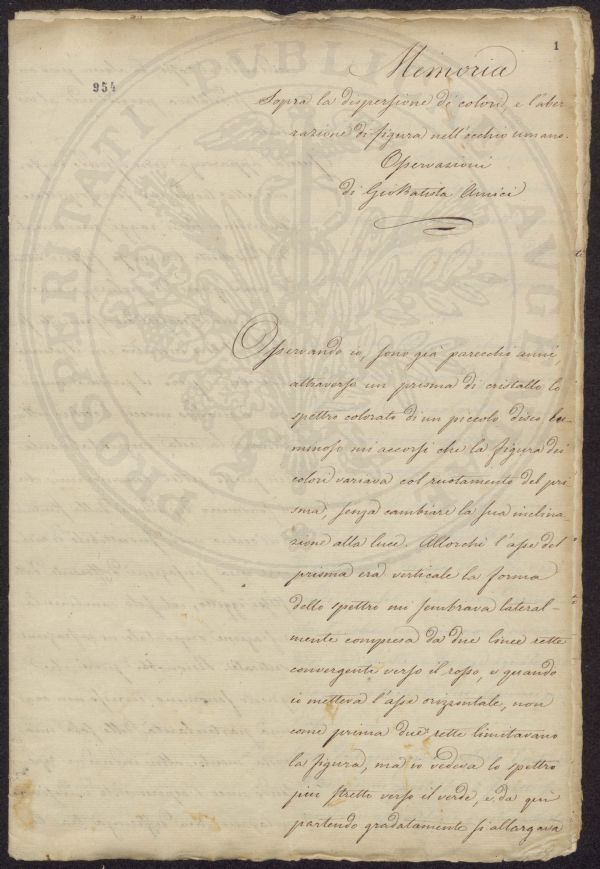 1
954
Memoria
Sopra la dispersione de' colori, e l'aber
razione di figura nell'occhio umano.
Osservazioni
di Gio Batista Amici
Osservando io, sono già parecchi anni,
attraverso un prisma di cristallo lo
spettro colorato di un piccolo disco lu-
minoso mi accorsi che la figura dei
colori variava col ruotamento del pri
sma, senza cambiare la sua inclina-
zione alla luce. Allorchè l'asse del
prisma era verticale la forma
dello spettro mi sembrava lateral-
mente compresa da due linee rette
convergenti verso il rosso, e quando
io metteva l'asse orizzontale, non
come prima due rette limitavano
la figura, ma io vedeva lo spettro
più stretto verso il verde, e da qui
partendo gradatamente si allargava
PROSPERITATI PVBLICAE AVGE